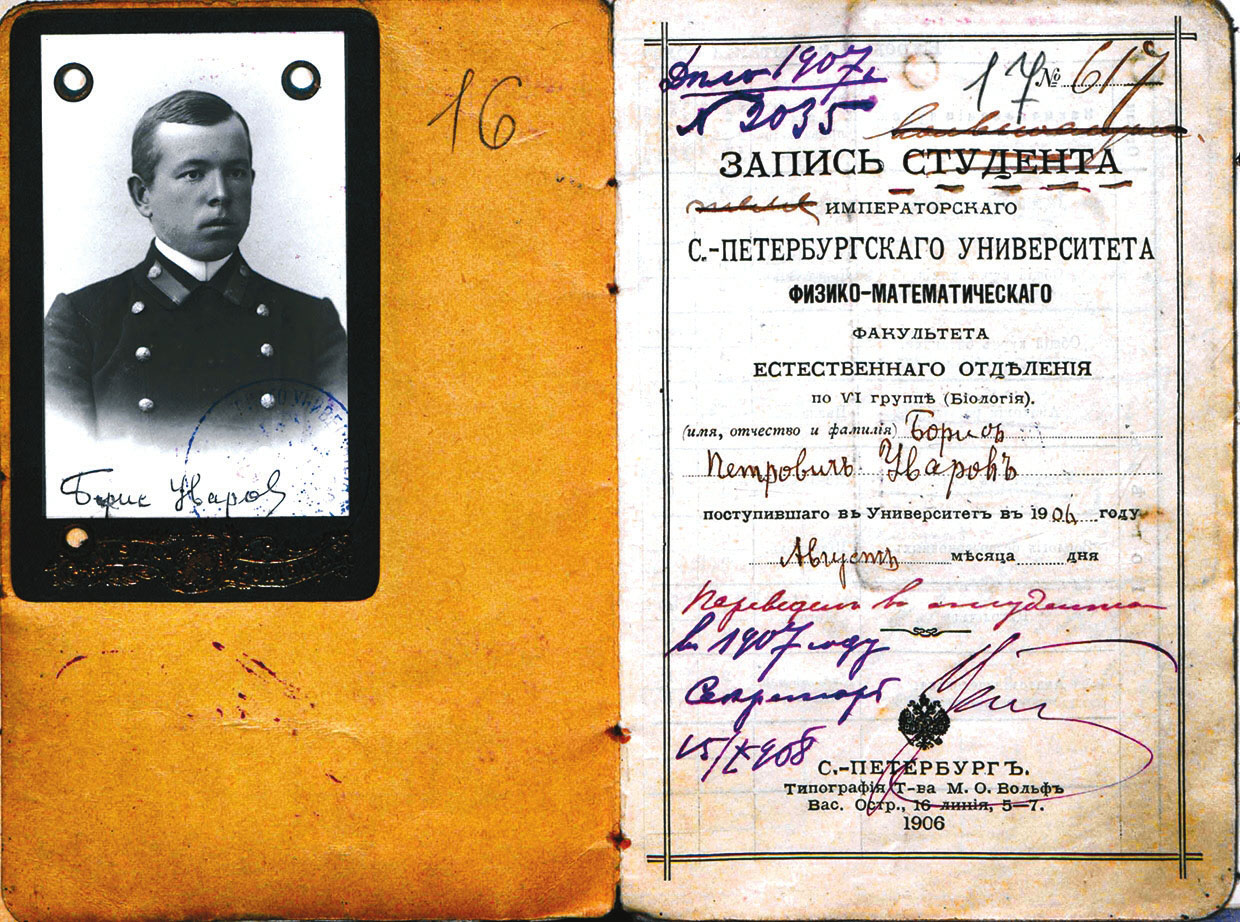 16
Борис Уваров
Дело 1907 г.
№ 2035
17 № 617
ЗАПИСЬ СТУДЕНТА
ИМПЕРАТОРСКАГО
С.-ПЕТЕРБУРГСКАГО УНИВЕРСИТЕТА
ФИЗИКО-МАТЕМАТИЧЕСКАГО
ФАКУЛЬТЕТА
ЕСТЕСТВЕННАГО ОТДѢЛЕНІЯ
по VI группѣ (Біологія).
(имя, отчество и фамилія) Борисъ
Петровичъ Уваровъ
поступившаго въ Университетъ въ 1906 году
Августъ мѣсяца дня
Переведенъ в студенты
в 1907 году
Секретарь
С.-ПЕТЕРБУРГЪ.
Типографія Т-ва М. О. Вольфъ
Вас. Остр., 16 линія, 5—7.
1906